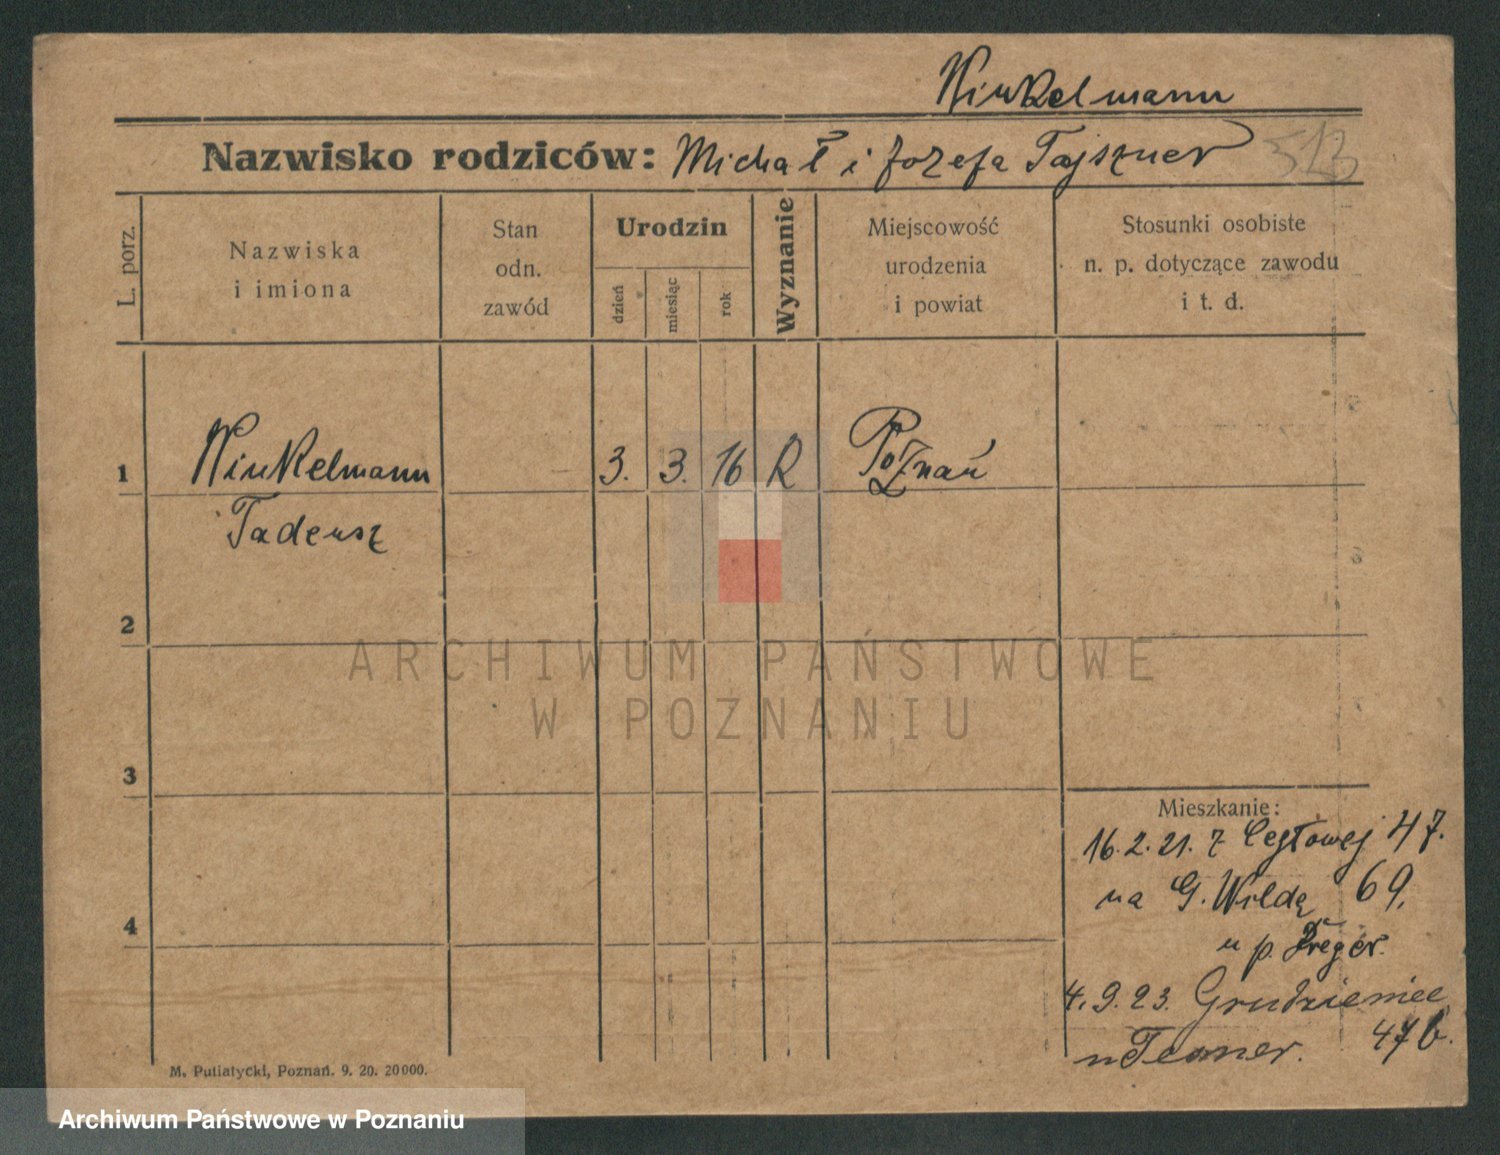 Winkelmann
Nazwisko rodziców: Michał i Jozefa Tajszner 513
L. porz.
Nazwiska
i imiona
Stan
odn.
zawód
Urodzin
dzień
miesiąc
rok
Wyznanie
Miejscowość
urodzenia
i powiat
Stosunki osobiste
n. p. dotyczące zawodu
i t. d.
1 Winkelmann 3. 3. 16 R Poznań
Tadeusz
2
3
4
Mieszkanie:
16.2.21. z Cegłowej 47.
na G. Wildę 69.
u p.
4.9.23. Grudzieniec
47b.
M. Putiatycki, Poznań. 9. 20. 20000.
ARCHIWUM PAŃSTWOWE
W POZNANIU
Archiwum Państwowe w Poznaniu